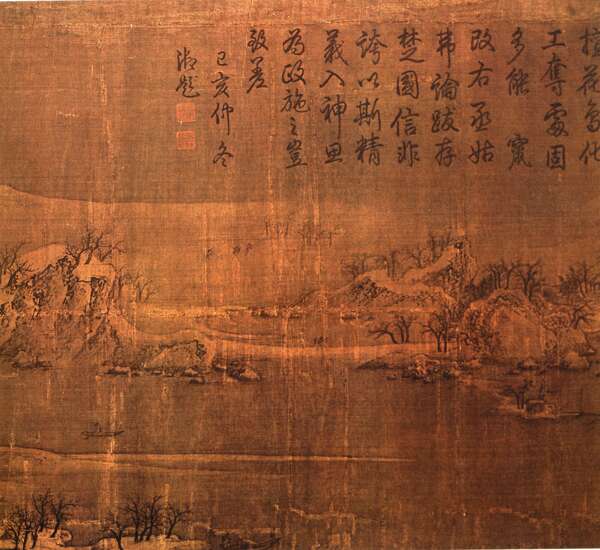 擅花鳥化
工奪處固
多能竄
改右丞姑
弗論跋存
楚國信非
誇以斯精
義入神思
為政施之豈
致差
己亥仲冬
御題